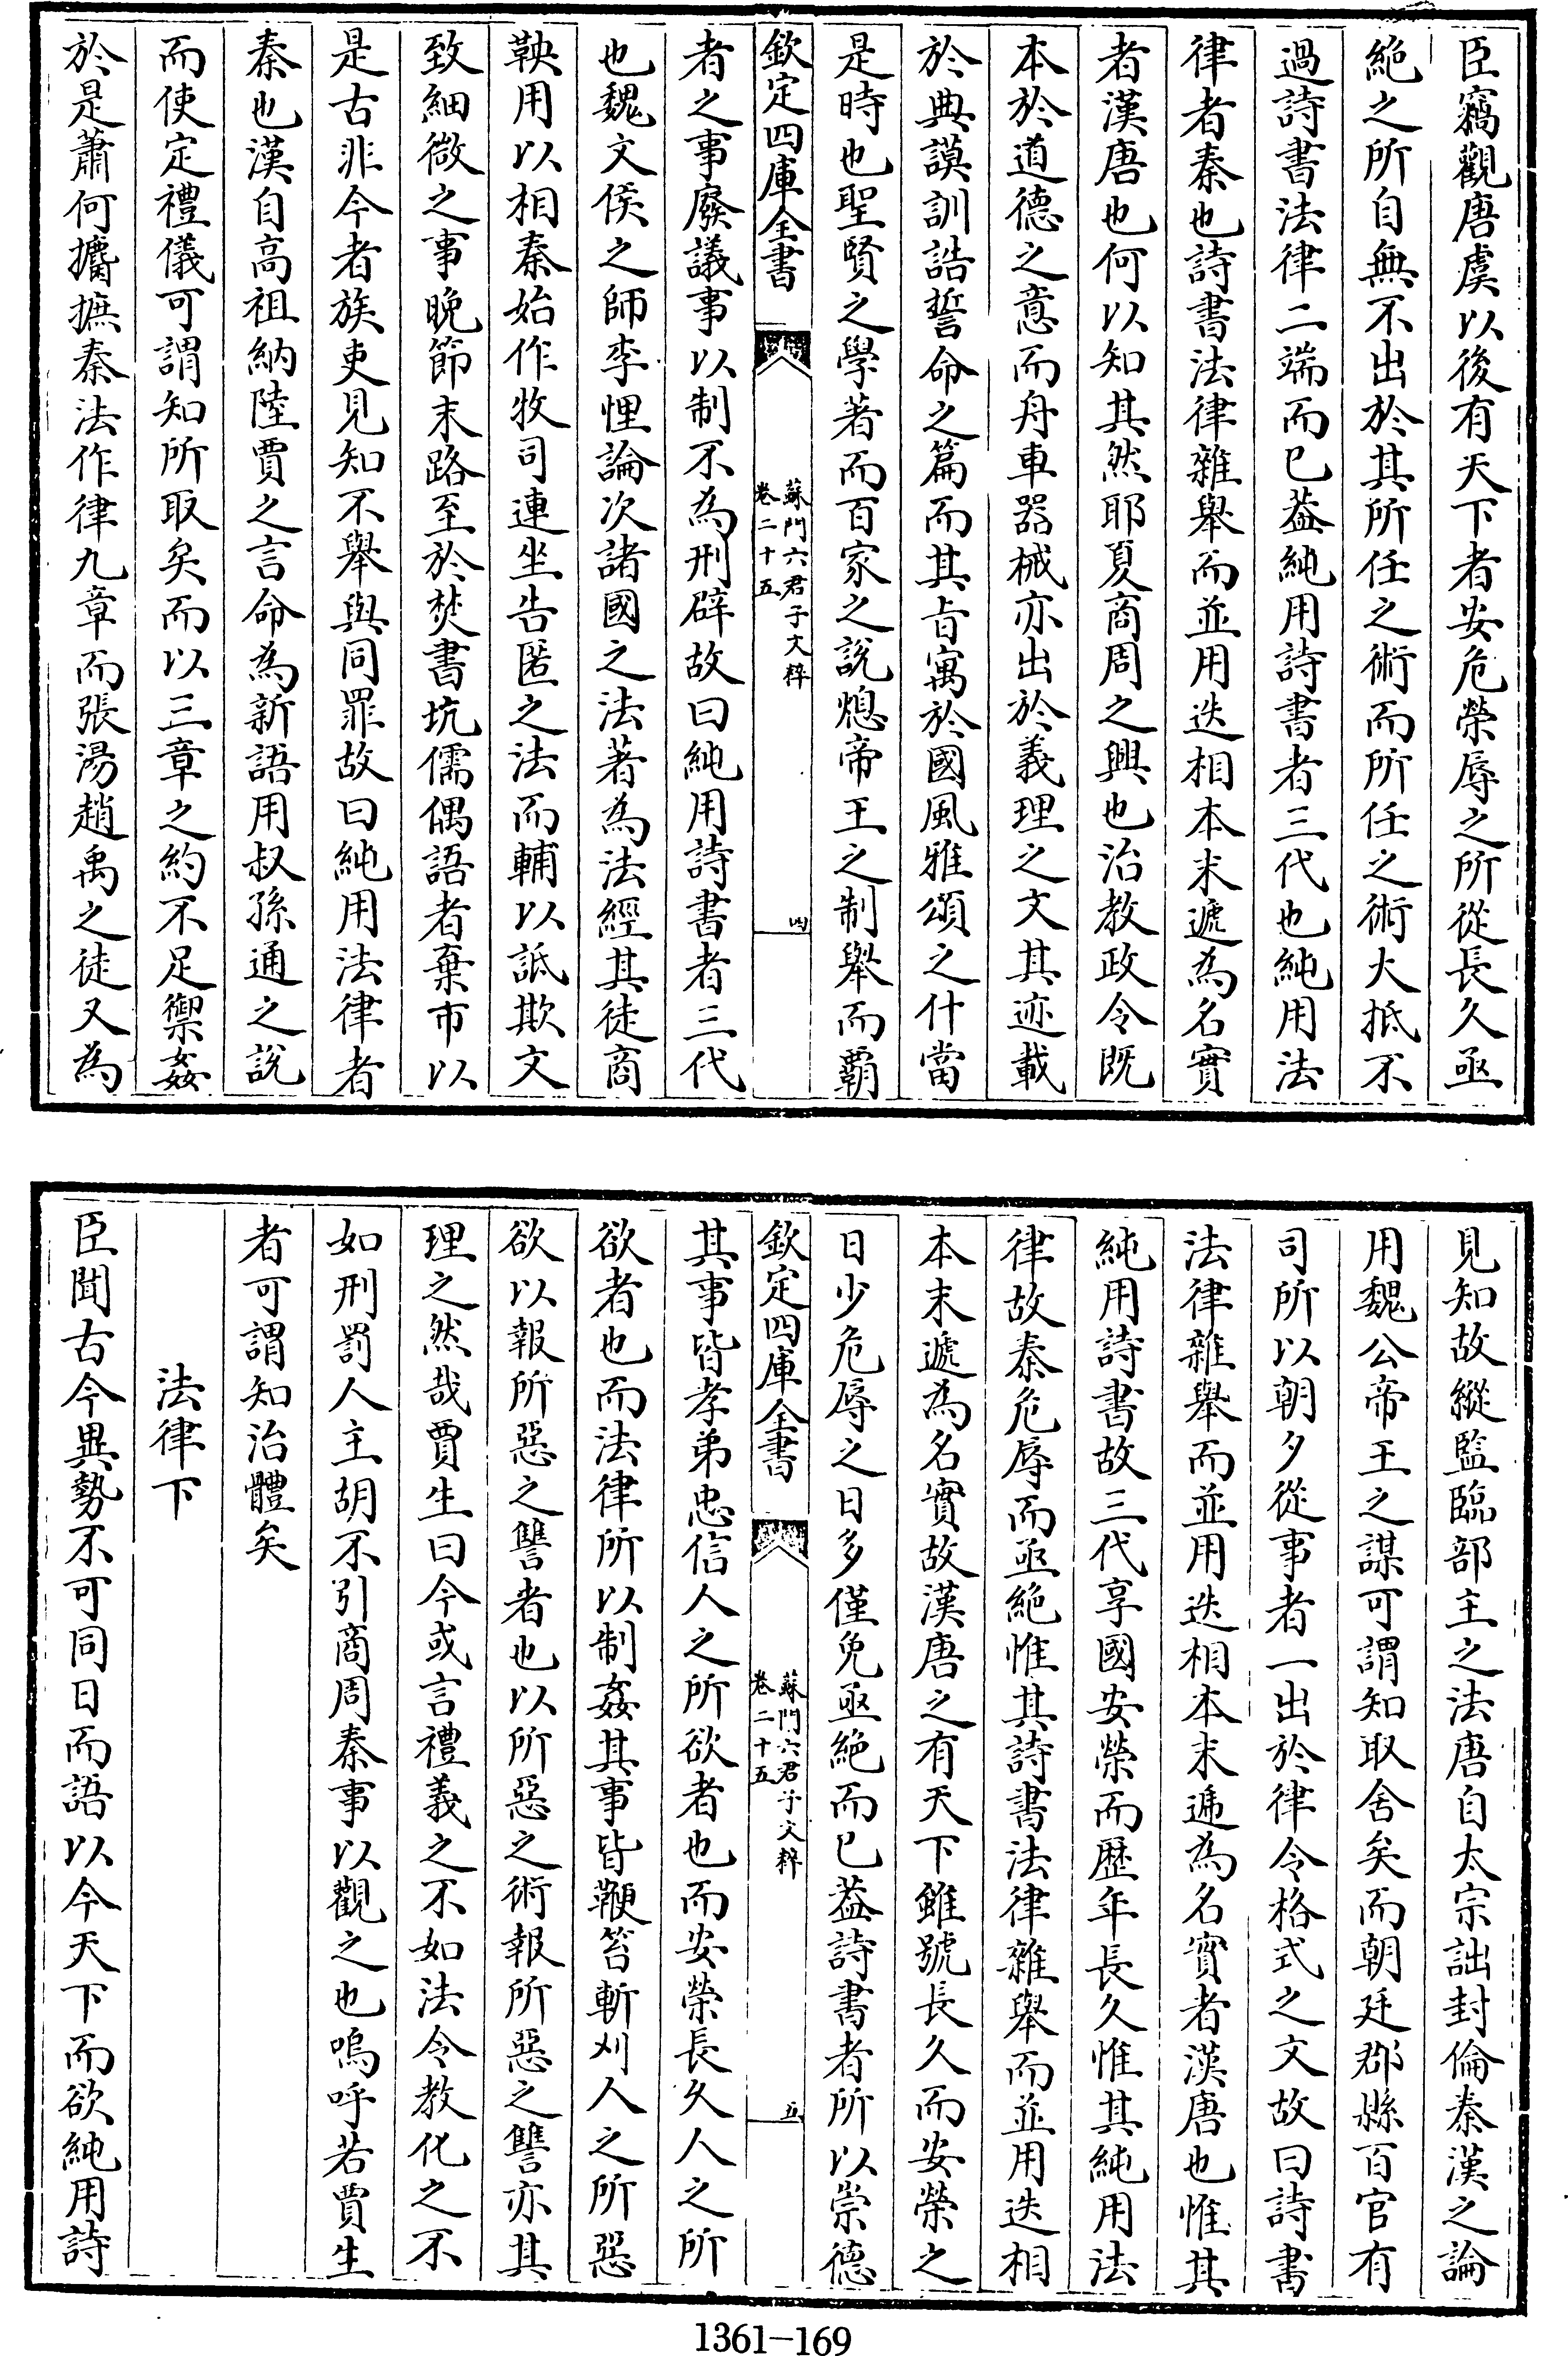 臣竊觀唐虞以後有天下者安危榮辱之所從長久亟
絶之所自無不出於其所任之術而所任之術大抵不
過詩書法律二端而已葢純用詩書者三代也純用法
律者秦也詩書法律雜舉而並用迭相本末遞為名實
者漢唐也何以知其然耶夏商周之興也治教政令既
本於道德之意而舟車器械亦出於義理之文其迹載
於典謨訓誥誓命之篇而其旨寓於國風雅頌之什當
是時也聖賢之學著而百家之說熄帝王之制舉而霸
欽定四庫全書
蘇門六君子文粹
卷二十五
四
者之事廢議事以制不為刑辟故曰純用詩書者三代
也魏文侯之師李悝論次諸國之法著為法經其徒商
鞅用以相秦始作牧司連坐告匿之法而輔以詆欺文
致細微之事晚節末路至於焚書坑儒偶語者棄市以
是古非今者族吏見知不舉與同罪故曰純用法律者
秦也漢自高祖納陸賈之言命為新語用叔孫通之說
而使定禮儀可謂知所取矣而以三章之約不足禦姦
於是蕭何攟摭秦法作律九章而張湯趙禹之徒又為
見知故縱監臨部主之法唐自太宗詘封倫秦漢之論
用魏公帝王之謀可謂知取舍矣而朝廷郡縣百官有
司所以朝夕從事者一出於律令格式之文故曰詩書
法律雜舉而並用迭相本末遞為名實者漢唐也惟其
純用詩書故三代享國安榮而歷年長久惟其純用法
律故秦危辱而亟絶惟其詩書法律雜舉而並用迭相
本末遞為名實故漢唐之有天下雖號長久而安榮之
日少危辱之日多僅免亟絶而已葢詩書者所以崇德
欽定四庫全書
蘇門六君子文粹
卷二十五
五
其事皆孝弟忠信人之所欲者也而安榮長久人之所
欲者也而法律所以制姦其事皆鞭笞斬刈人之所惡
欲以報所惡之讐者也以所惡之術報所惡之讐亦其
理之然哉賈生曰今或言禮義之不如法令教化之不
如刑罰人主胡不引商周秦事以觀之也嗚呼若賈生
者可謂知治體矣
法律下
臣聞古今異勢不可同日而語以今天下而欲純用詩
1361-169